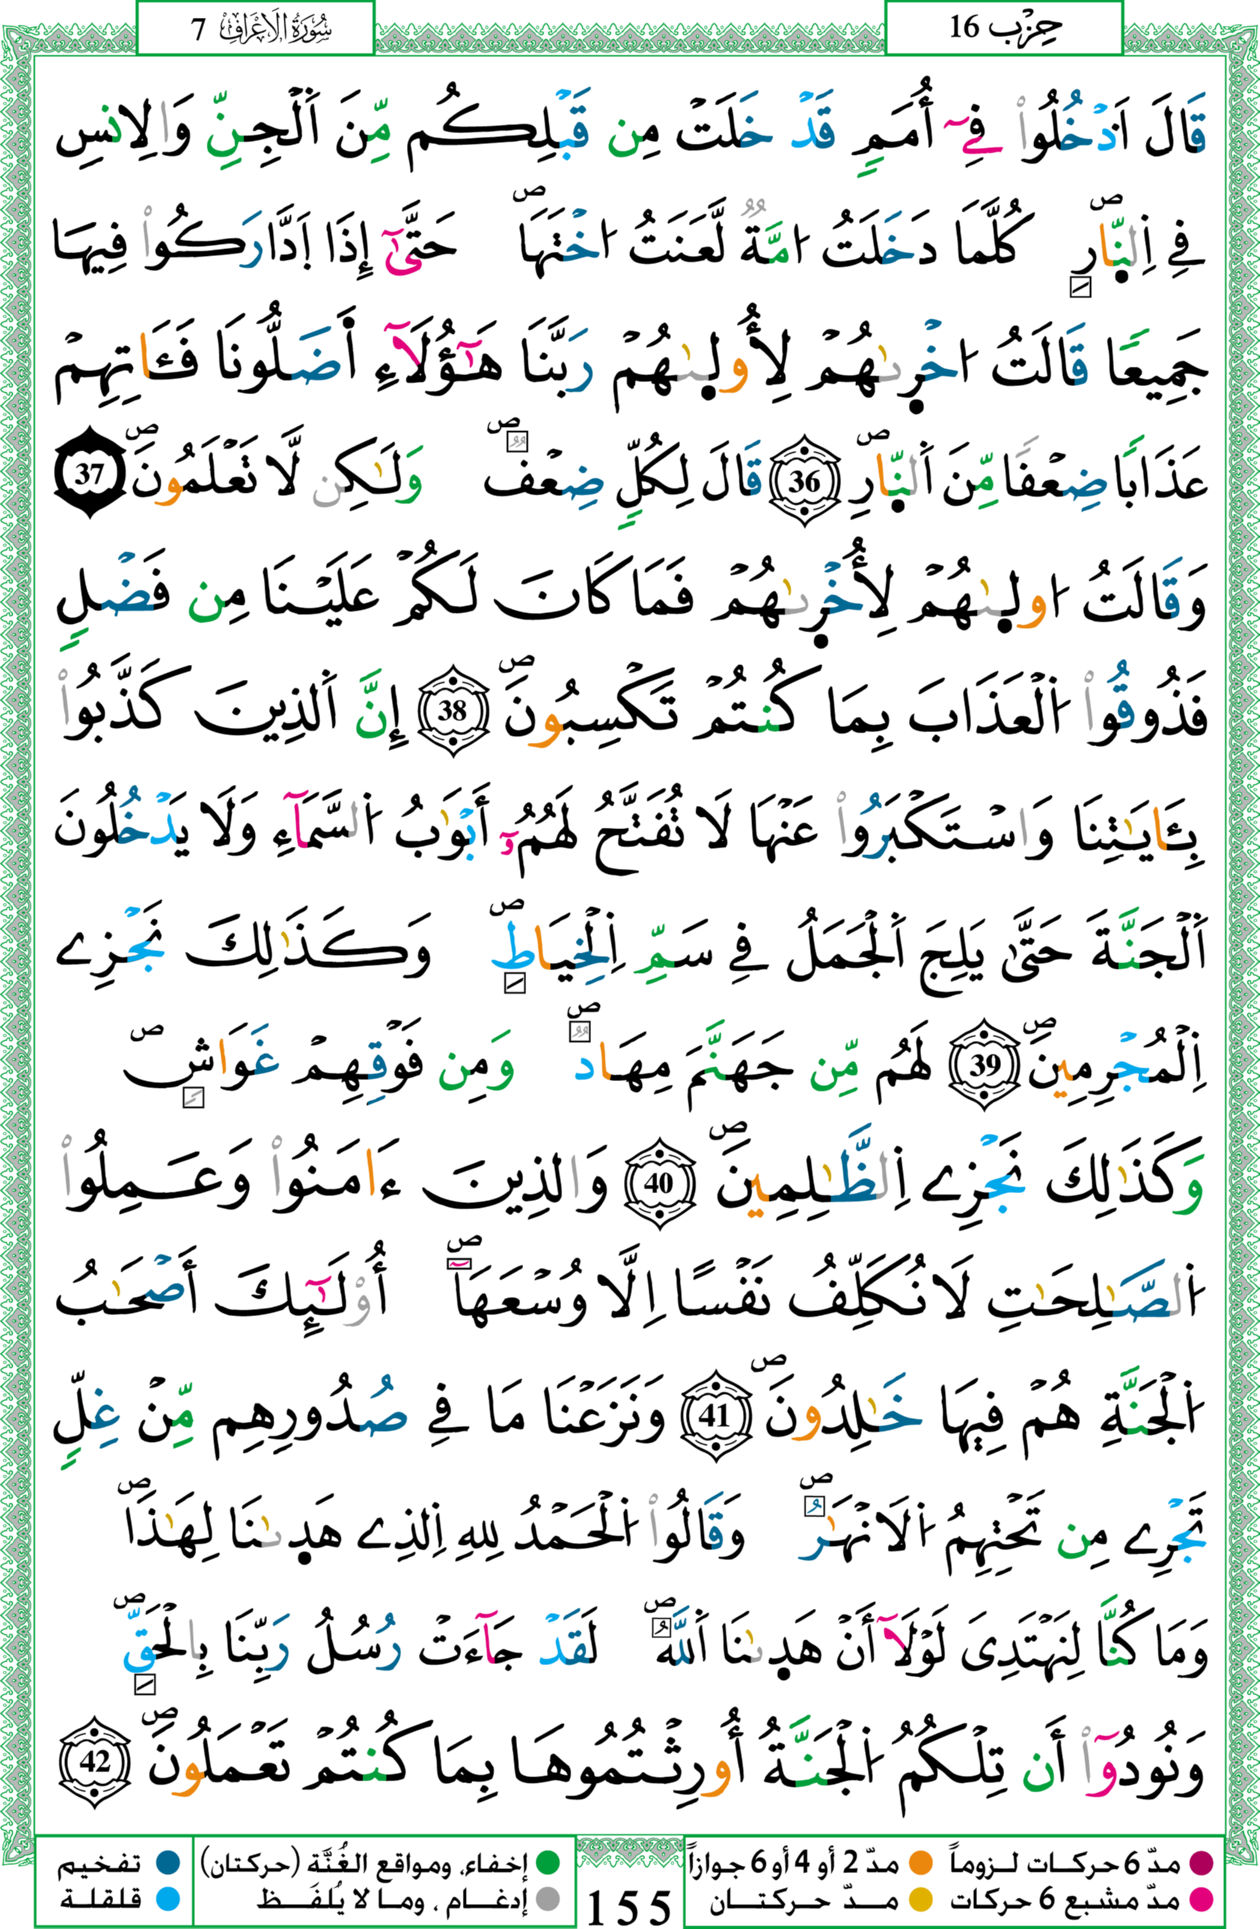 سُورَةُ الْأَعْرَافِ 7
حِزْب 16
قَالَ اَ۟دْخُلُوا۟ فِےٓ أُمَمٖ قَدْ خَلَتْ مِن قَبْلِكُم مِّنَ اَ۬لْجِنِّ وَالِانسِ
فِے اِ۬لنّ۪ارِ ص كُلَّمَا دَخَلَتُ ا۟مَّةٞ لَّعَنَتُ ا۟خْتَهَا ص حَتَّىٰٓ إِذَا اَ۪دَّارَكُوا۟ فِيهَا
جَمِيعٗا قَالَتُ ا۟خْر۪ىٰهُمْ لِأُول۪ىٰهُمْ رَبَّنَا هَٰٓؤُلَآءِ اَ۬ضَلُّونَا فَـَٔاتِهِمْ
عَذَابٗا ضِعْفٗا مِّنَ اَ۬لنّ۪ارِ ص 36 قَالَ لِكُلّٖ ضِعْفٞ ص وَلَٰكِن لَّا تَعْلَمُونَ ص 37
وَقَالَتُ ا۟ول۪ىٰهُمْ لِأُخْر۪ىٰهُمْ فَمَا كَانَ لَكُمْ عَلَيْنَا مِن فَضْلٖ
فَذُوقُوا۟ اُ۬لْعَذَابَ بِمَا كُنتُمْ تَكْسِبُونَ ص 38 إِنَّ اَ۬لذِينَ كَذَّبُوا۟
بِـَٔايَٰتِنَا وَاسْتَكْبَرُوا۟ عَنْهَا لَا تُفَتَّحُ لَهُمُۥٓ أَبْوَٰبُ اُ۬لسَّمَآءِ وَلَا يَدْخُلُونَ
اَ۬لْجَنَّةَ حَتَّىٰ يَلِجَ اَ۬لْجَمَلُ فِے سَمِّ اِ۬لْخِيَاطِ ص وَكَذَٰلِكَ نَجْزِے
اِ۬لْمُجْرِمِينَ ص 39 لَهُم مِّن جَهَنَّمَ مِهَادٞ ص وَمِن فَوْقِهِمْ غَوَاشٖ ص
وَكَذَٰلِكَ نَجْزِے اِ۬لظَّٰلِمِينَ ص 40 وَالذِينَ ءَامَنُوا۟ وَعَمِلُوا۟
اُ۬لصَّٰلِحَٰتِ لَا نُكَلِّفُ نَفْسًا اِلَّا وُسْعَهَآ ص أُو۟لَٰٓئِكَ أَصْحَٰبُ
اُ۬لْجَنَّةِ هُمْ فِيهَا خَٰلِدُونَ ص 41 وَنَزَعْنَا مَا فِے صُدُورِهِم مِّنْ غِلّٖ
تَجْرِے مِن تَحْتِهِمُ اُ۬لَانْهَٰرُ ص وَقَالُوا۟ اُ۬لْحَمْدُ لِلهِ اِ۬لذِے هَد۪ىٰنَا لِهَٰذَا ص
وَمَا كُنَّا لِنَهْتَدِىَ لَوْلَآ أَنْ هَد۪ىٰنَا اَ۬للَّهُ ص لَقَدْ جَآءَتْ رُسُلُ رَبِّنَا بِالْحَقِّ ص
وَنُودُوٓا۟ أَن تِلْكُمُ اُ۬لْجَنَّةُ أُورِثْتُمُوهَا بِمَا كُنتُمْ تَعْمَلُونَ ص 42
مدّ 6 حركات لـزوماً ● مدّ 2 أو 4 أو 6 جوازاً ● إخفاء، ومواقع الغُنَّة (حركتان) ● تفخيم
مدّ مشبع 6 حركات ● مــدّ حــركتــان ● إدغــام ، ومـا لا يُلفَـظ ● قلقلـة
155